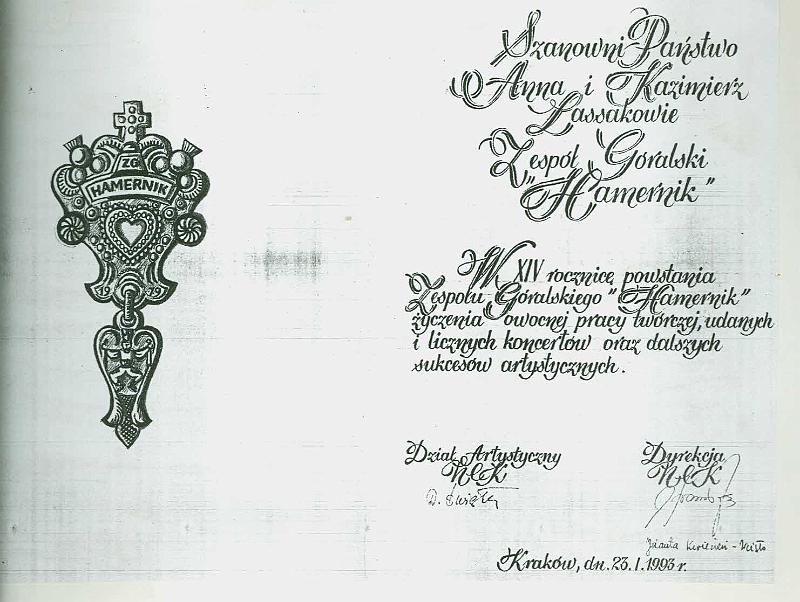 ZG
HAMERNIK
1979
Szanowni Państwo
Anna i Kazimierz
Lassakowie
Zespół Góralski
"Hamernik"
W XIV rocznicę powstania
Zespołu Góralskiego "Hamernik"
życzenia owocnej pracy twórczej, udanych
i licznych koncertów oraz dalszych
sukcesów artystycznych.
Dział Artystyczny
NCK
Dyrekcja
NCK
Kraków, dn. 23.1.1993 r.